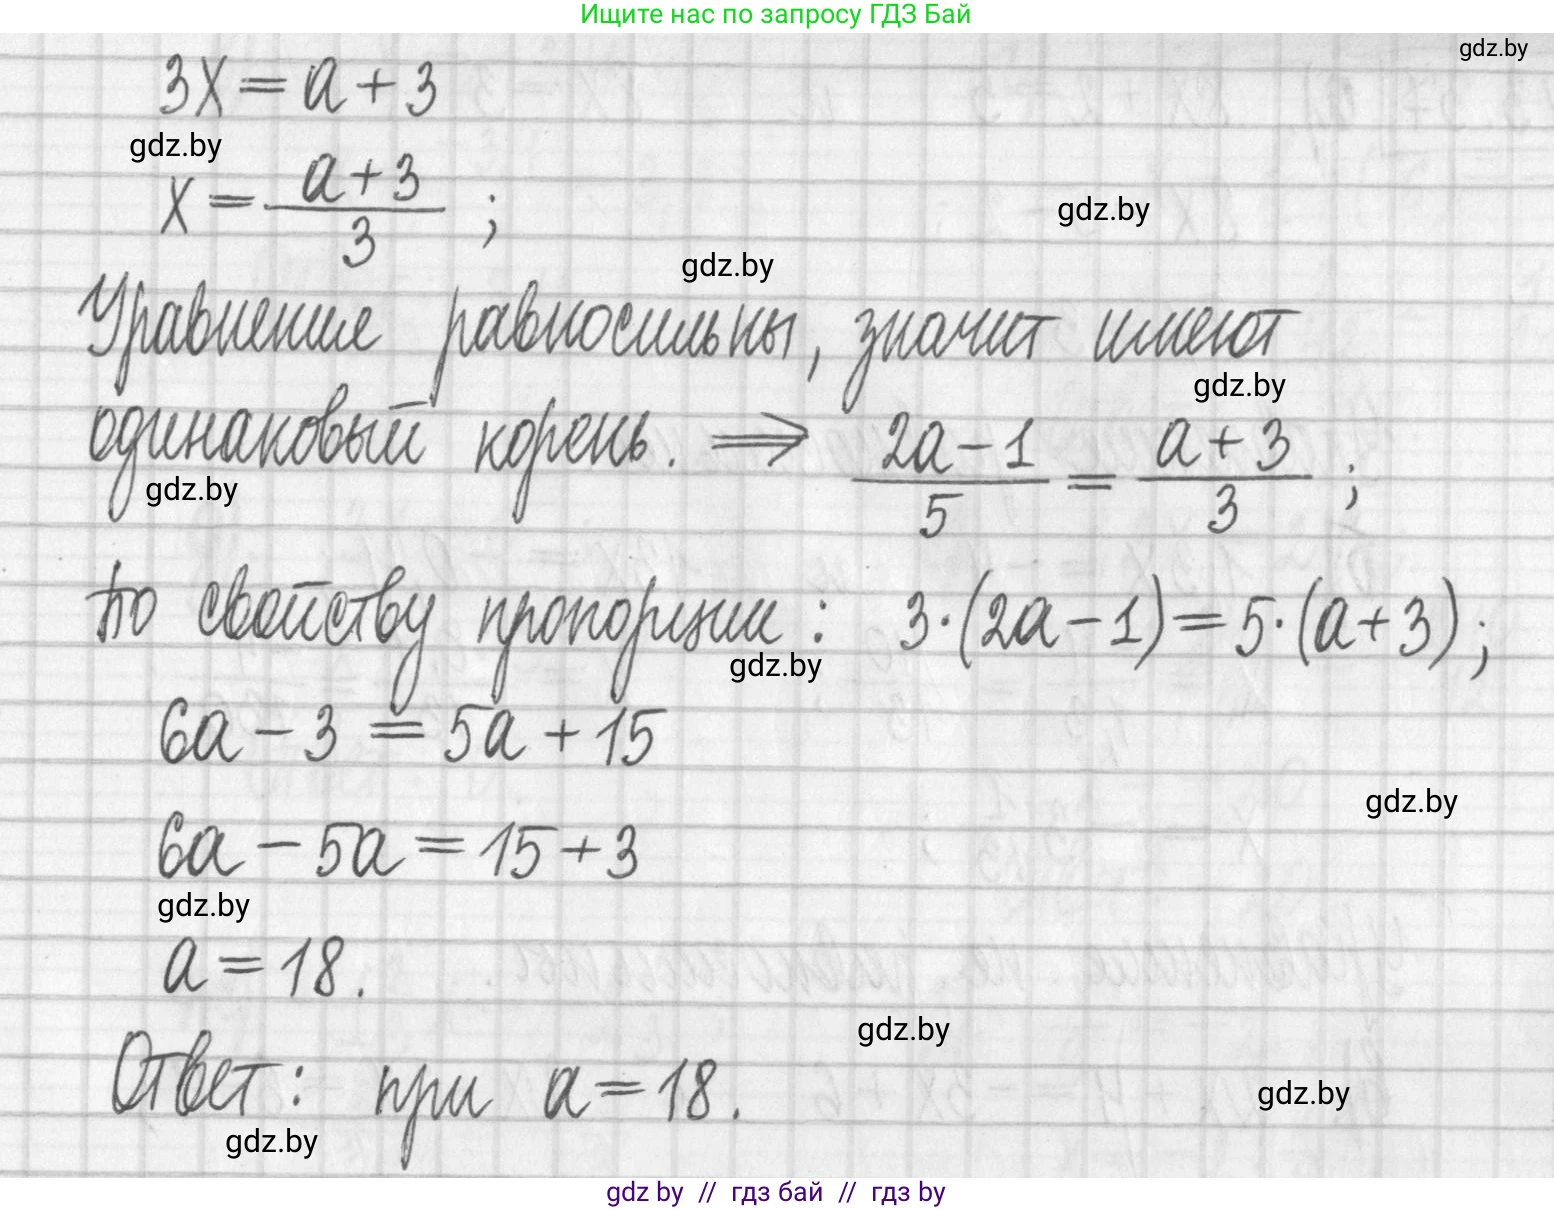 Ищите нас по запросу ГДЗ Бай
gdz.by
3x = a + 3
gdz.by
x = \frac{a+3}{3} ;
gdz.by
gdz.by
Уравнения равносильны, значит имеют
gdz.by
одинаковый корень. ⇒ \frac{2a-1}{5} = \frac{a+3}{3} ;
gdz.by
По свойству пропорции: 3·(2a-1)=5·(a+3);
gdz.by
6a - 3 = 5a + 15
gdz.by
6a - 5a = 15 + 3
gdz.by
a = 18.
gdz.by
Ответ: при a = 18.
gdz.by
gdz.by
gdz by // гдз бай // гдз by